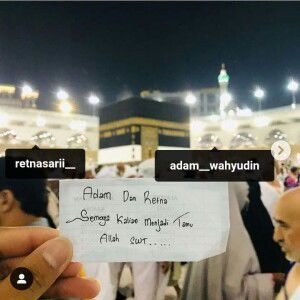 retnasarii__
adam__wahyudin
Adam Dan Retna
Semoga Kalian Menjadi Tamu
Allah SWT.....